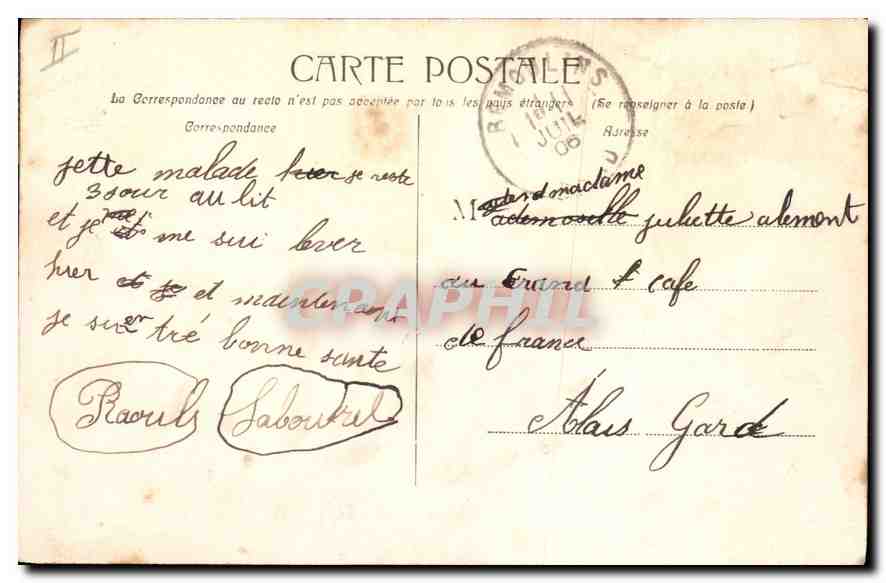 II
CARTE POSTALE
La Correspondance au recto n'est pas acceptée par tous les pays étrangers (Se renseigner à la poste)
Correspondance
jette malade hier je reste
3 jour au lit
et je me sui lever
hier et je et maintenant
je sui en tré bonne sante
Raouls Saboutrel
REMOULINS
11
JUIL
06
Adresse
M madame
ademoiselle juliette alemont
au Grand cafe
de france
Alais Gard
CPARHIL